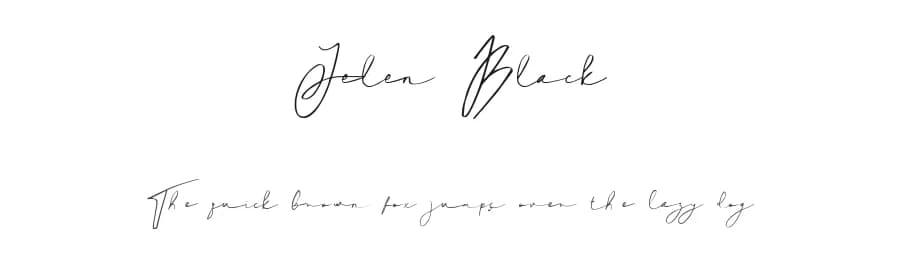 Jelen Black
The quick brown fox jumps over the lazy dog